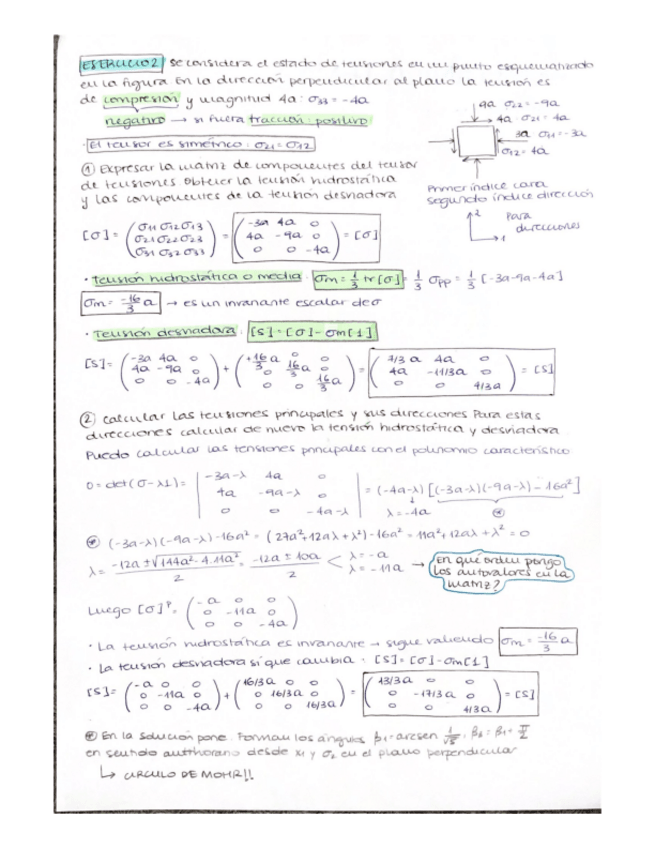 EJERCICIO 2 Se considera el estado de tensiones en un punto esquematizado
en la figura. En la dirección perpendicular al plano la tensión es
de compresión y magnitud 4a: σ33 = -4a
negativo → si fuera tracción: positivo
· El tensor es simétrico: σ21 = σ12
9a σ22 = -9a
4a · σ21 = 4a
3a σ11 = -3a
σ12 = 4a
① Expresar la matriz de componentes del tensor
de tensiones. Obtener la tensión hidrostática
y las componentes de la tensión desviadora
Primer índice cara
segundo índice dirección
2
1
Para
direcciones
[σ] = (σ11 σ12 σ13 / σ21 σ22 σ23 / σ31 σ32 σ33) = (-3a 4a 0 / 4a -9a 0 / 0 0 -4a) = [σ]
· Tensión hidrostática o media: σm = 1/3 tr[σ] = 1/3 σpp = 1/3 [-3a-9a-4a]
σm = -16/3 a → es un invariante escalar de σ
· Tensión desviadora: [S] = [σ] - σm[1]
[S] = (-3a 4a 0 / 4a -9a 0 / 0 0 -4a) + (+16/3 a 0 0 / 0 16/3 a 0 / 0 0 16/3 a) = (7/3 a 4a 0 / 4a -11/3a 0 / 0 0 4/3a) = [S]
② Calcular las tensiones principales y sus direcciones. Para estas
direcciones calcular de nuevo la tensión hidrostática y desviadora
Puedo calcular las tensiones principales con el polinomio característico
0 = det(σ-λ1) = | -3a-λ 4a 0 / 4a -9a-λ 0 / 0 0 -4a-λ | = (-4a-λ) [(-3a-λ)(-9a-λ) - 16a²]
↓ λ = -4a ⊛
⊛ (-3a-λ)(-9a-λ) - 16a² = (27a² + 12aλ + λ²) - 16a² = 11a² + 12aλ + λ² = 0
λ = (-12a ± √(144a² - 4·11a²))/2 = (-12a ± 10a)/2 < λ = -a
λ = -11a → En qué orden pongo
los autovalores en la
matriz?
Luego [σ]ᴾ = (-a 0 0 / 0 -11a 0 / 0 0 -4a)
· La tensión hidrostática es invariante → sigue valiendo σm = -16/3 a
· La tensión desviadora sí que cambia: [S] = [σ] - σm[1]
[S] = (-a 0 0 / 0 -11a 0 / 0 0 -4a) + (16/3a 0 0 / 0 16/3a 0 / 0 0 16/3a) = (13/3a 0 0 / 0 -17/3a 0 / 0 0 4/3a) = [S]
⊛ En la solución pone: Forman los ángulos β1 = arcsen 1/√5,
en sentido antihorario desde x1 y σ2 en el plano perpendicular
↳ CIRCULO DE MOHR!!